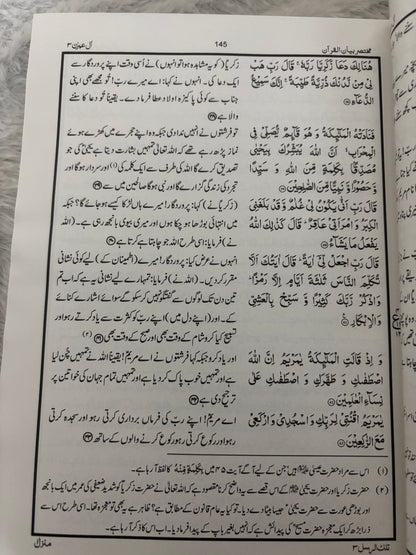 مختصر بیان القرآن 145 آل عمرٰن ۳
هُنَالِكَ دَعَا زَكَرِيَّا رَبَّهٗ ۚ قَالَ رَبِّ هَبْ
لِىْ مِنْ لَّدُنْكَ ذُرِّيَّةً طَيِّبَةً ۚ اِنَّكَ سَمِيْعُ
الدُّعَآءِ ﴿۳۸﴾
فَنَادَتْهُ الْمَلٰٓئِكَةُ وَ هُوَ قَآئِمٌ يُّصَلِّىْ فِى
الْمِحْرَابِ ۙ اَنَّ اللّٰهَ يُبَشِّرُكَ بِيَحْيٰى
مُصَدِّقًۢا بِكَلِمَةٍ مِّنَ اللّٰهِ وَ سَيِّدًا
وَّ حَصُوْرًا وَّ نَبِيًّا مِّنَ الصّٰلِحِيْنَ ﴿۳۹﴾
قَالَ رَبِّ اَنّٰى يَكُوْنُ لِىْ غُلٰمٌ وَّ قَدْ بَلَغَنِىَ
الْكِبَرُ وَ امْرَاَتِىْ عَاقِرٌ ؕ قَالَ كَذٰلِكَ اللّٰهُ
يَفْعَلُ مَا يَشَآءُ ﴿۴۰﴾
قَالَ رَبِّ اجْعَلْ لِّىْٓ اٰيَةً ؕ قَالَ اٰيَتُكَ اَلَّا
تُكَلِّمَ النَّاسَ ثَلٰثَةَ اَيَّامٍ اِلَّا رَمْزًا ؕ
وَ اذْكُرْ رَّبَّكَ كَثِيْرًا وَّ سَبِّحْ بِالْعَشِىِّ
وَ الْاِبْكَارِ ﴿۴۱﴾
وَ اِذْ قَالَتِ الْمَلٰٓئِكَةُ يٰمَرْيَمُ اِنَّ اللّٰهَ
اصْطَفٰىكِ وَ طَهَّرَكِ وَ اصْطَفٰىكِ عَلٰى
نِسَآءِ الْعٰلَمِيْنَ ﴿۴۲﴾
يٰمَرْيَمُ اقْنُتِىْ لِرَبِّكِ وَ اسْجُدِىْ وَ ارْكَعِىْ
مَعَ الرّٰكِعِيْنَ ﴿۴۳﴾
زکریا (کو یہ مشاہدہ ہوا تو انہوں) نے اُسی وقت اپنے پروردگار سے
ایک دعا کی۔ انہوں نے کہا: اے میرے ربّ! تُو مجھے بھی اپنی
جناب سے کوئی پاکیزہ اولاد عطا فرما دے۔ یقیناً تُو دعا کا سننے
والا ہے ﴿۳۸﴾
تو فرشتوں نے انہیں ندا دی جبکہ وہ اپنے حجرے میں کھڑے ہوئے
نماز پڑھ رہے تھے کہ اللہ تعالیٰ تمہیں بشارت دیتا ہے یحییٰ کی جو
تصدیق کرے گا اللہ کی طرف سے ایک کلمے کی (۱) اور سردار ہو گا اور
تجرد کی زندگی گزارے گا اور نبی ہو گا صالحین میں سے ﴿۳۹﴾
(زکریا نے) کہا: پروردگار! میرے ہاں لڑکا کیسے ہو جائے گا؟ جبکہ
میں انتہائی بوڑھا ہو چکا ہوں اور میری بیوی بانجھ رہی ہے۔ (اللہ
نے) فرمایا: اسی طرح اللہ جو چاہتا ہے کرتا ہے ﴿۴۰﴾
انہوں نے عرض کیا: پروردگار! میرے (اطمینان کے) لیے کوئی نشانی
مقرر کر دیں۔ (اللہ نے) فرمایا: تمہارے لیے نشانی یہ ہے کہ اب تم
تین دن تک لوگوں سے گفتگو نہیں کر سکو گے سوائے اشارے کنائے
کے۔ اور (اپنے دل میں) اپنے ربّ کو کثرت سے یاد کرتے رہو اور
تسبیح کیا کرو شام کے وقت بھی اور صبح کے وقت بھی ﴿۴۱﴾ (۲)
اور یاد کرو جبکہ کہا فرشتوں نے اے مریم! یقیناً اللہ نے تمہیں چُن لیا
ہے اور تمہیں خوب پاک کر دیا ہے اور تمہیں تمام جہان کی خواتین پر
ترجیح دی ہے ﴿۴۲﴾
اے مریم! تم اپنے ربّ کی فرماں برداری کرتی رہو اور سجدہ کرتی
رہو اور رکوع کرتی رہو رکوع کرنے والوں کے ساتھ ﴿۴۳﴾
(۱) اس سے مراد حضرت عیسیٰ ہیں جن کے لیے آگے آیت ۴۵ میں بِكَلِمَةٍ مِّنْهُ کا لفظ آ رہا ہے۔
(۲) حضرت زکریا اور حضرت یحییٰ کے اس قصے سے یہ واضح کرنا مقصود ہے کہ اللہ تعالیٰ نے زکریا کو شدید ضعیفی کی عمر میں ایک بانجھ
اور بوڑھی بیوی سے حضرت یحییٰ جیسا بیٹا دے دیا۔ تو کیا یہ عام قانون کے مطابق ہے؟ ظاہر ہے یہ بھی تو معجزہ تھا۔ اسی طرح اس سے
ذرا بڑھ کر ایک معجزہ حضرت مسیح کی پیدائش ہے کہ انہیں بغیر باپ کے پیدا فرما دیا۔ اب اس کا ذکر آ رہا ہے۔
تلك الرسل ۳ منزل